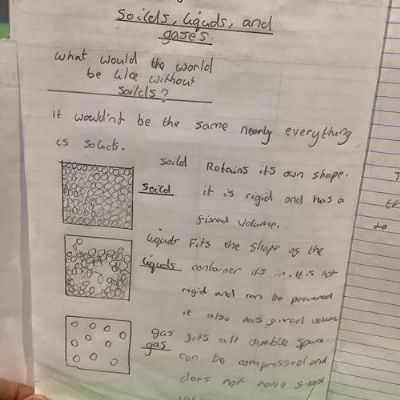 Soilds, liquds, and
gases.
what would the world
be like without
soilds?
it wouldn't be the same nearly everything
is solids.
soild Retains its own shape.
soild it is rigid and has a
fixed volume.
liquds Fits the shape of the
liquds container its in. It is not
rigid and can be powered
it also has fixed volume
gas fits all avable space.
gas can be compressed and
does not have fixed